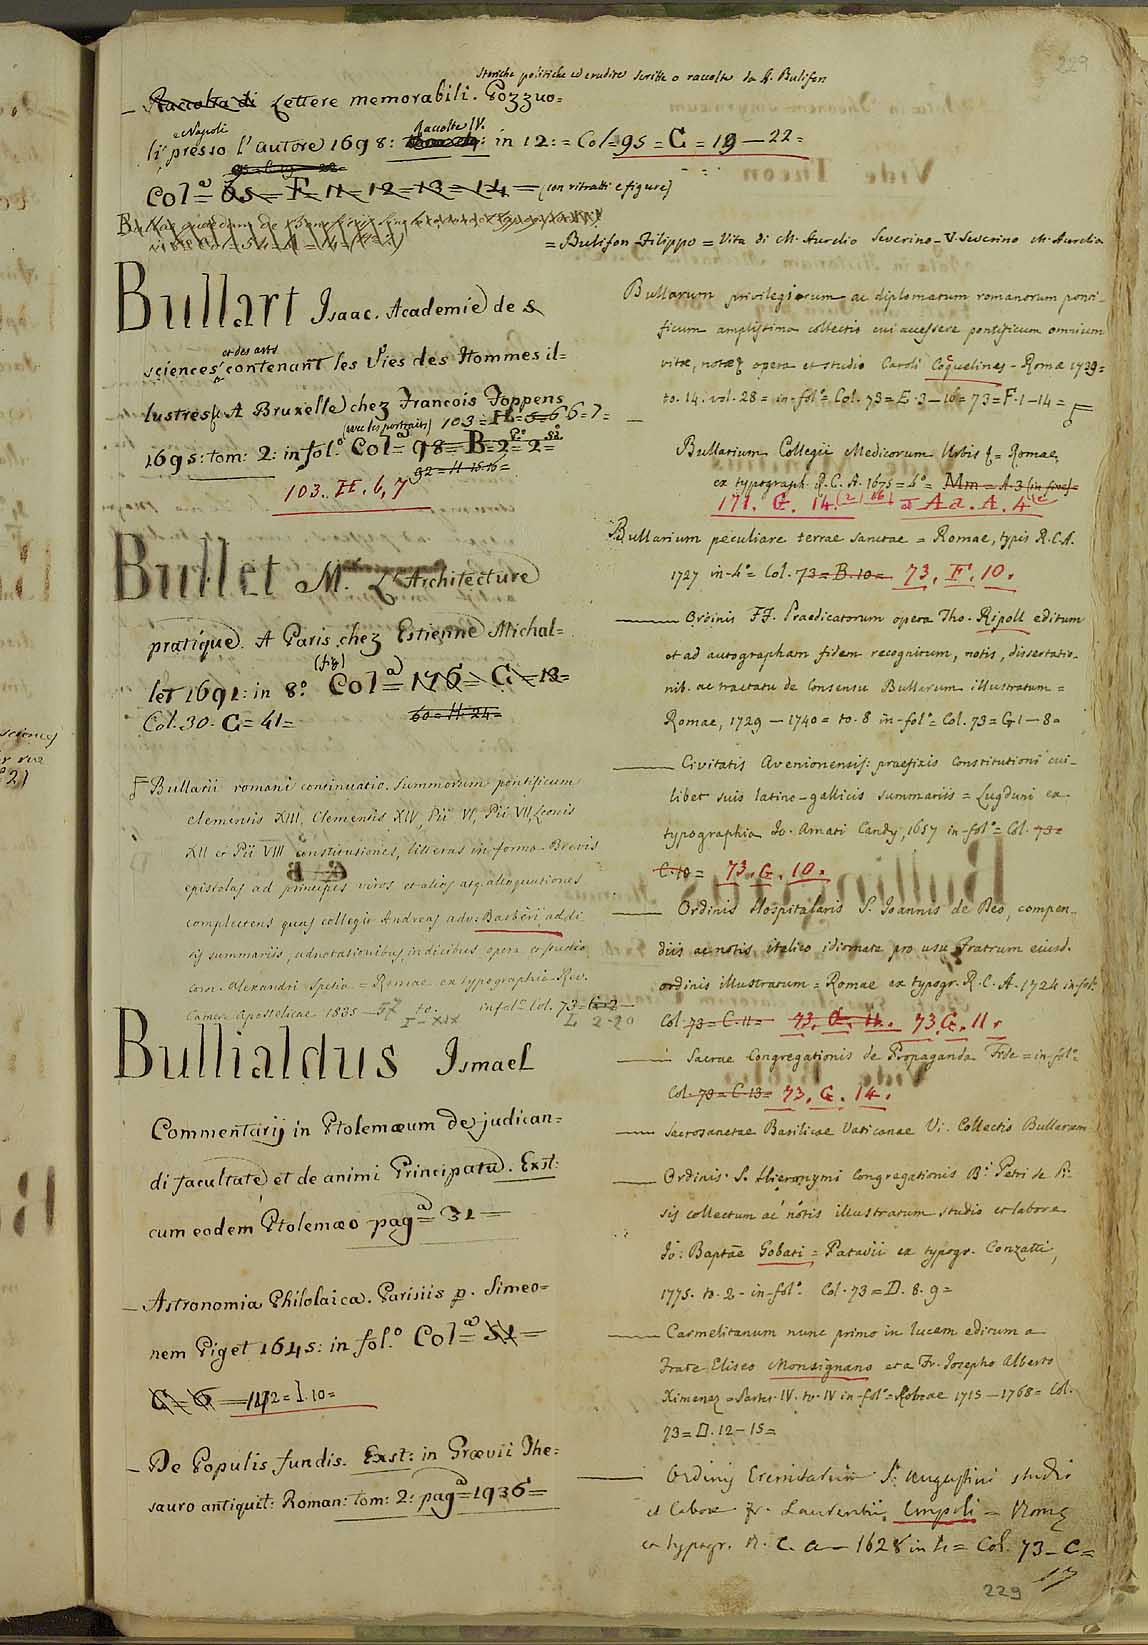 229
Storiche politiche ed erudite scritte o raccolte da A. Bulifon
— Raccolta di Lettere memorabili. Pozzuo=
e Napoli
li presso l'autore 1698: Raccolte IV. in 12: = Col = 95 = C = 19 — 22 =
95 = C 19 = 22
Colª 65 = F. 11 = 12 = 13 = 14 = (con ritratti e figure)
= Bulifon Filippo = Vita di M. Aurelio Severino - V. Severino M. Aurelio
Bullart Isaac. Academie de s
et des arts
sciences contenant les Vies des Hommes il=
lustres A Bruxelle chez Francois Foppens
(avec les portraits) 103 = H = 5 = 6 6 = 7 =
1695: tom: 2: in fol.º Colª 98 = B = 2º = 2
92 = H 15 16 =
103. H. 6, 7
Bullet M. L'Architecture
pratique. A Paris chez Estienne Michal=
(fig)
let 1691: in 8º Colª = 176 = G = 13 =
Col. 30. G = 41 =
60 = H. 24 =
F Bullarii romani continuatio. Summorum pontificum
Clementis XIII, Clementis XIV, Pii VI, Pii VII, Leonis
XII et Pii VIII constitutiones, litteras in forma Brevis
epistolas ad principes viros et alios atq. alloquutiones
complectens quas collegit Andreas adv: Barbèri addi
is summariis, adnotationibus, indicibus opera et studio
Alexandri Spetia = Romae ex typographia Rev.
Camer. Apostolicae 1835 — 57 to. I - XIX in fol.º Col. 73 = G 2 —
L 2-20
Bullialdus Ismael
Commentarij in Ptolemæum de judican=
di facultate et de animi Principatu. Exst:
cum eodem Ptolemæo pagª 31 =
— Astronomia Philolaica. Parisiis p. Simeo=
nem Piget 1645: in fol.º Colª 51 =
C = 6 — 112 = I. 10 =
— De Populis fundis. Exst: in Grævii The=
sauro antiquit: Roman: tom: 2: pagª 1936 =
Bullarum privilegiorum ac diplomatum romanorum ponti-
ficum amplissima collectio cui accessere pontificum omnium
vitæ, notæ opera et studio Caroli Coquelines - Romæ 1739 =
to. 14. vol. 28 = in-fol.º Col. 73 = E. 3 — 16 = 73 = F. 1 - 14 = F
Bullarium Collegii Medicorum Urbis = Romae,
ex typograph. R. C. A. 1675 = 4º = Mm = A. 3 (in fine) =
171. G. 14. (2) (16) = A d. A. 4
Bullarium peculiare terrae sanctae = Romae, typis R. C. A.
1727 in-4º = Col. 73 = B. 10 = 73. F. 10.
— Ordinis FF. Praedicatorum opera Tho. Ripoll editum
et ad autographam fidem recognitum, notis, dissertatio-
nib. ac tractatu de Consensu Bullarum illustratum =
Romae, 1729 — 1740 = to. 8 in-fol.º = Col. 73 = G 1 — 8 =
— Civitatis Avenionensis: praefixis constitutioni cui-
libet suis latino-gallicis summariis = Lugduni ex
typographia Jo. Amati Candy, 1657 in-fol.º = Col. 73 =
C. 10 = 73. G. 10.
— Ordinis Hospitalaris S. Joannis de Deo, compen-
diis ac notis italico idiomate pro usu Fratrum eiusd.
ordinis illustratum = Romae ex typogr. R. C. A. 1724 in-fol.º
Col. 73 = C. 11 = 73. G. 11. 73. G. 11.
— Sacrae Congregationis de Propaganda Fide = in-fol.º
Col. 73 = C. 13 = 73. G. 14.
— Sacrosanctae Basilicae Vaticanae V. Collectio Bullarum
— Ordinis S. Hieronymi Congregationis B. Petri de Pi-
sis collectum ac notis illustratum studio et labore
Jo: Baptæ Gobati = Patavii ex typogr. Conzatti,
1775. to. 2 - in-fol.º Col. 73 = D. 8. 9 =
— Carmelitanum nunc primo in lucem editum a
Fratre Eliseo Monsignano et a Fr. Josepho Alberto
Ximenez = Partes IV. to. IV in-fol.º = Romae 1715 — 1768 = Col.
73 = D. 12 - 15 =
— Ordinis Eremitarum S. Augustini studio
et labore Fr. Laurentii Empoli = Romæ
ex typogr. R. C. A — 1628 in 4 = Col. 73 - C =
17
229